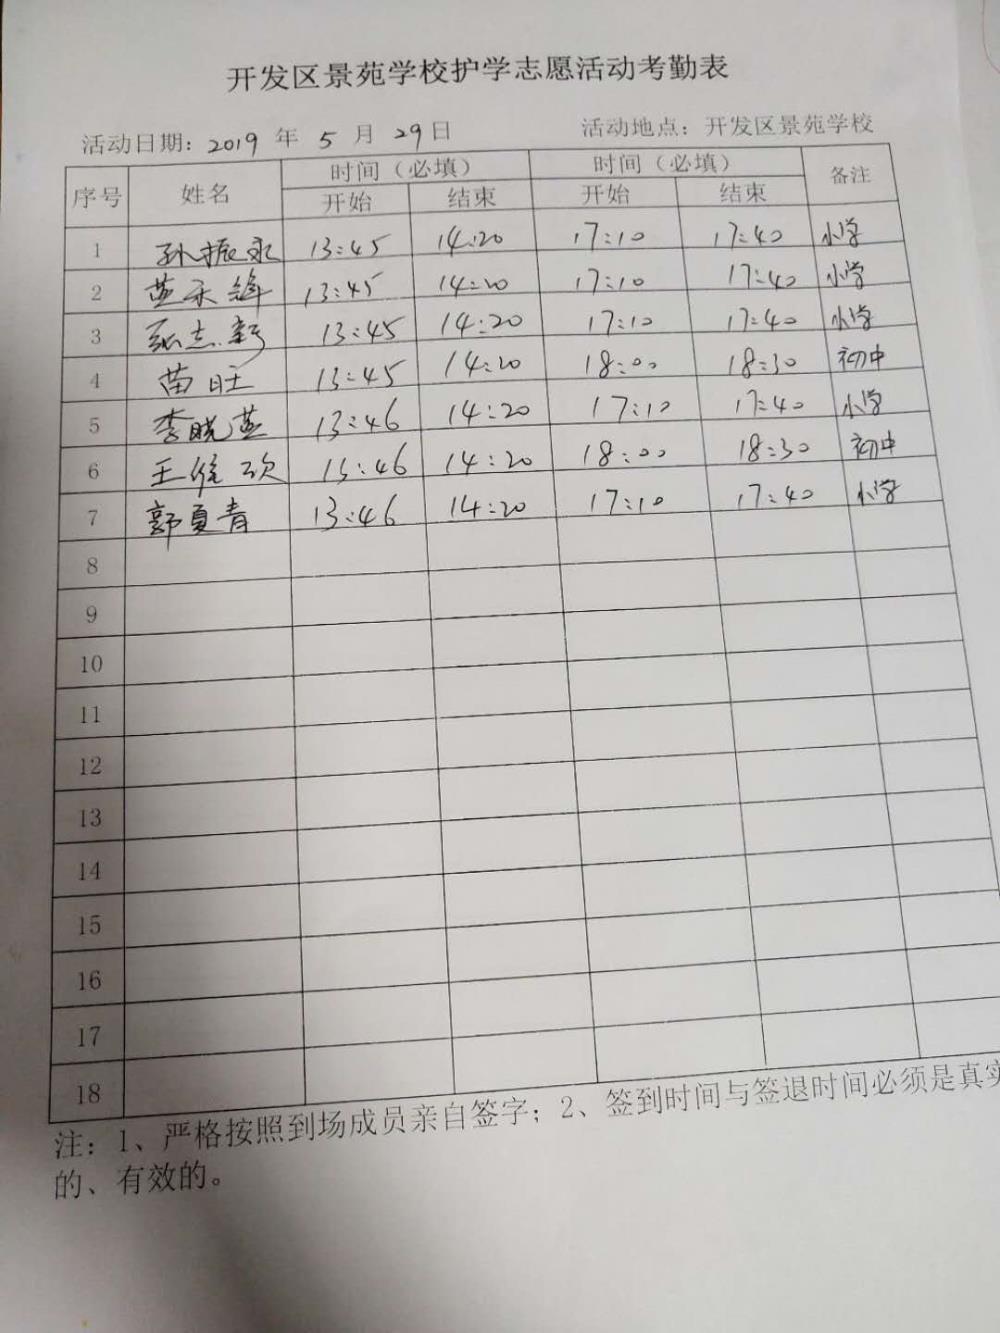 开发区景苑学校护学志愿活动考勤表
活动日期: 2019 年 5 月 29日 活动地点: 开发区景苑学校
序号 姓名 时间（必填） 时间（必填） 备注
开始 结束 开始 结束
1 孙振永 13:45 14:20 17:10 17:40 小学
2 黄永锋 13:45 14:20 17:10 17:40 小学
3 张志新 13:45 14:20 17:10 17:40 小学
4 苗旺 13:45 14:20 18:00 18:30 初中
5 李晓燕 13:46 14:20 17:10 17:40 小学
6 王 欣 13:46 14:20 18:00 18:30 初中
7 郭夏青 13:46 14:20 17:10 17:40 小学
8
9
10
11
12
13
14
15
16
17
18
注: 1、严格按照到场成员亲自签字; 2、签到时间与签退时间必须是真实
的、有效的。